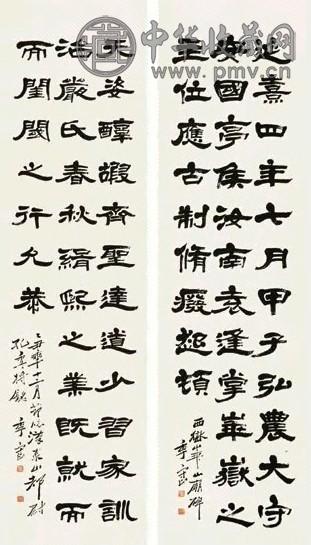 中华收藏网
www.pmv.cn
延熹四年七月甲子弘農大守
安國亭侯汝南袁逢掌華嶽之
主位應古制脩癈起頓
西嶽華山廟碑
天姿醇嘏齊聖達道少習家訓
治嚴氏春秋緝熙之業既就而
而閨閾之行允恭
年十二月節臨漢泰山都尉
孔宙碑銘